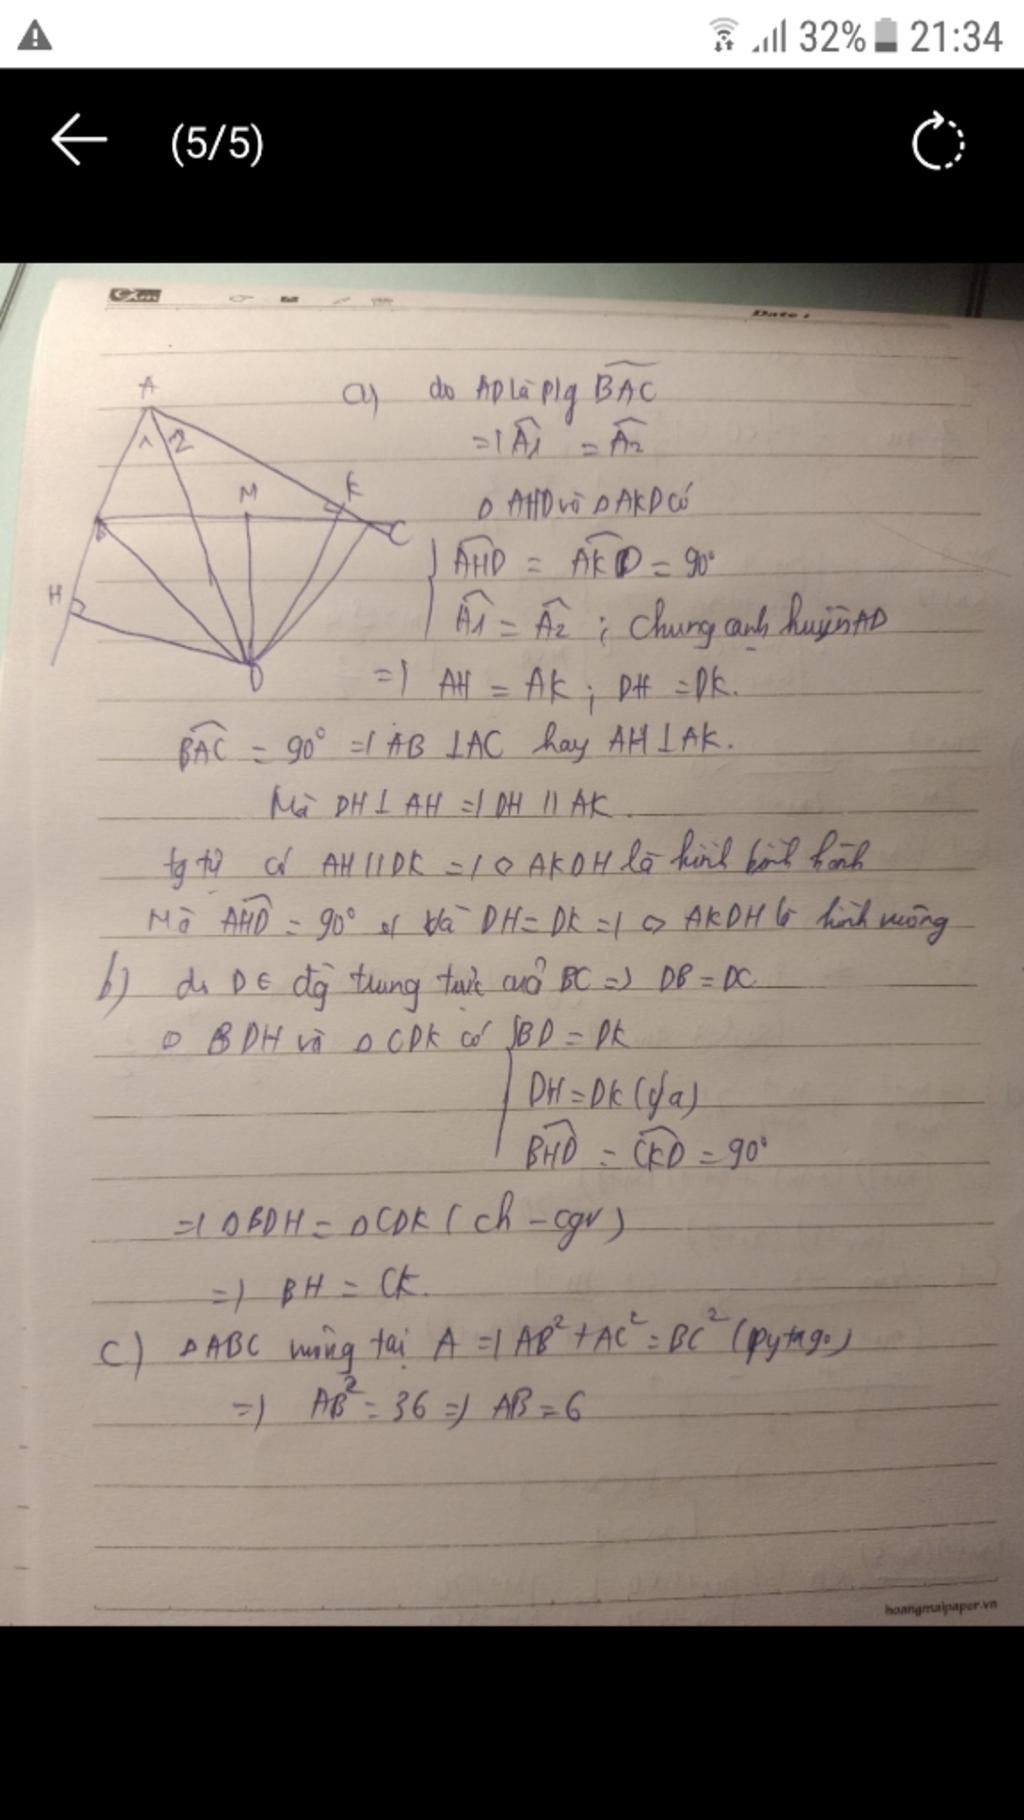 32% 21:34
(5/5)
Date :
a) do AD là p/g BAC
=> A1 = A2
Δ AHD và Δ AKD có
AHD = AKD = 90°
A1 = A2 ; chung cạnh huyền AD
=> AH = AK ; DH = DK.
BAC = 90° => AB ⊥ AC hay AH ⊥ AK.
Mà DH ⊥ AH => DH // AK
tg tự có AH // DK => ◇ AKDH là hình bình hành
Mà AHD = 90° và DH = DK => ◇ AKDH là hình vuông
b) do D ∈ đg trung trực của BC => DB = DC
Δ BDH và Δ CDK có BD = DK
DH = DK (c/a)
BHD = CKD = 90°
=> Δ BDH = Δ CDK (ch - cgv)
=> BH = CK.
c) Δ ABC vuông tại A => AB² + AC² = BC² (pytago)
=> AB² = 36 => AB = 6
A
1 2
M
K
B
C
H
D
hoangmaipaper.vn